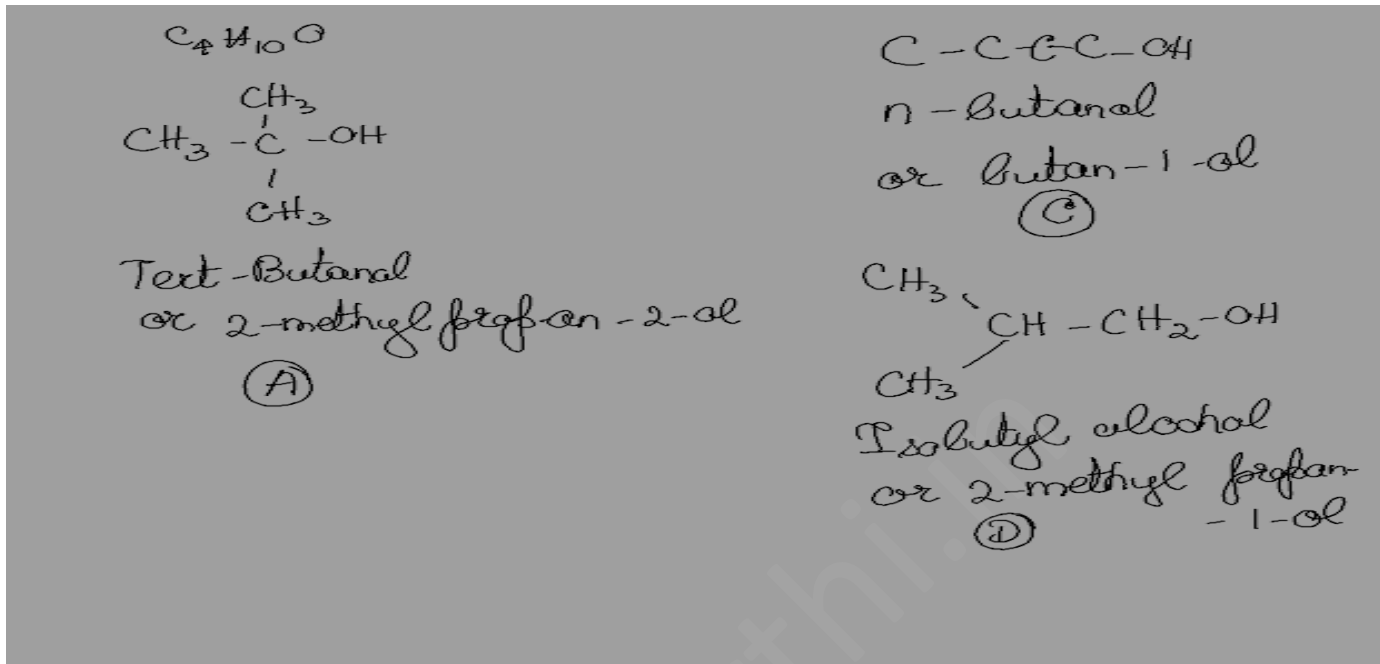 C4H10O
CH3
CH3 - C - OH
CH3
Tert-Butanal
or 2-methyl propan-2-ol
A
C - C - C - C - OH
n-butanol
or butan-1-ol
C
CH3
CH - CH2 - OH
CH3
Isobutyl alcohal
or 2-methyl propan-
-1-ol
D
thi.in